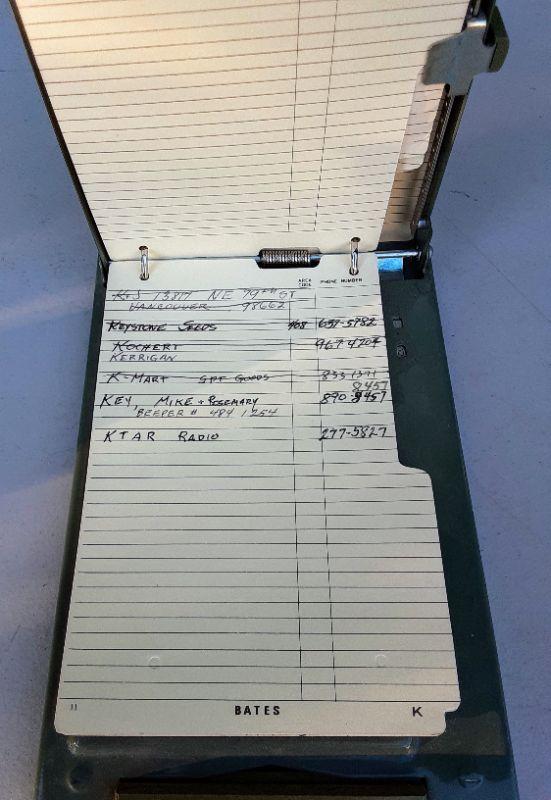 AREA CODE PHONE NUMBER
K&S 13817 NE 79TH ST
VANCOUVER 98662
KEYSTONE SEEDS 408 657-5782
KOCHERT 967-4204
KERRIGAN
K-MART SPT GOODS 833 1371
8457
KEY, MIKE + ROSEMARY 890-8457
BEEPER # 484 1254
KTAR RADIO 277-5827
11 BATES K